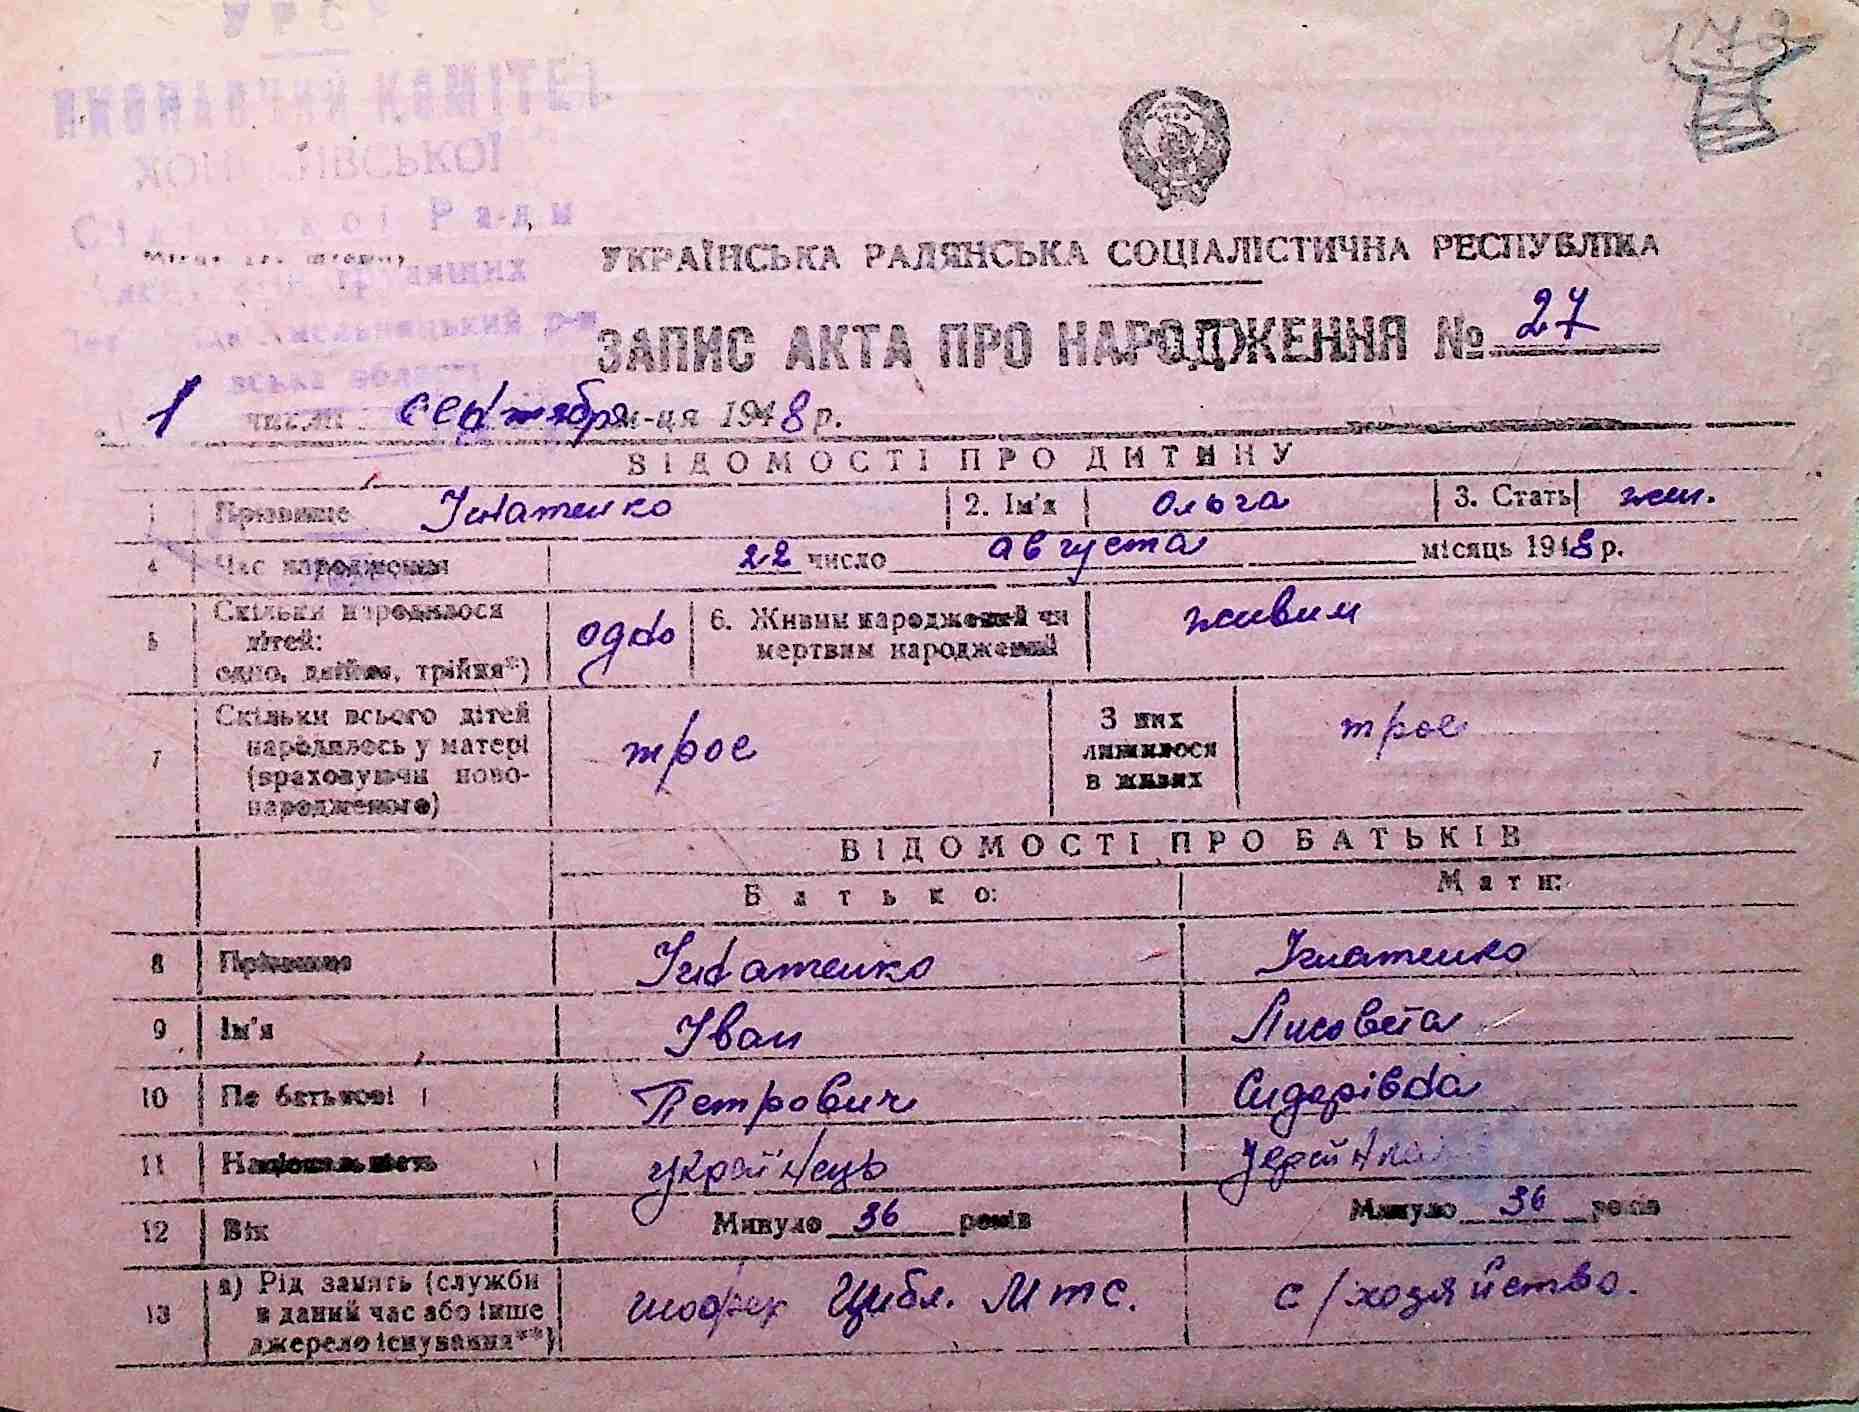 УРСР
ВИКОНАВЧИЙ КОМІТЕТ
Сільської Ради
Місце для штампу
УКРАЇНСЬКА РАДЯНСЬКА СОЦІАЛІСТИЧНА РЕСПУБЛІКА
ЗАПИС АКТА ПРО НАРОДЖЕННЯ № 27
1 числа сентября м-ця 1948 р.
ВІДОМОСТІ ПРО ДИТИНУ
1 Прізвище Ігнатенко 2. Ім'я Ольга 3. Стать жен.
4 Час народження 22 число августа місяць 1948 р.
5 Скільки народилося
дітей:
одно, двійня, трійня*) одно 6. Живим народжений чи
мертвим народжений живим
7 Скільки всього дітей
народилось у матері
(враховуючи ново-
народженого) трое З них
лишилося
в живих трое
ВІДОМОСТІ ПРО БАТЬКІВ
Батько: Мати:
8 Прізвище Ігнатенко Ігнатенко
9 Ім'я Іван Лисовета
10 По батькові Петрович Сидорівна
11 Національність українець українка
12 Вік Минуло 36 років Минуло 36 років
13 а) Рід занять (служби
в даний час або інше
джерело існування**) шофер Цибл. МТС. с/хозяйство.